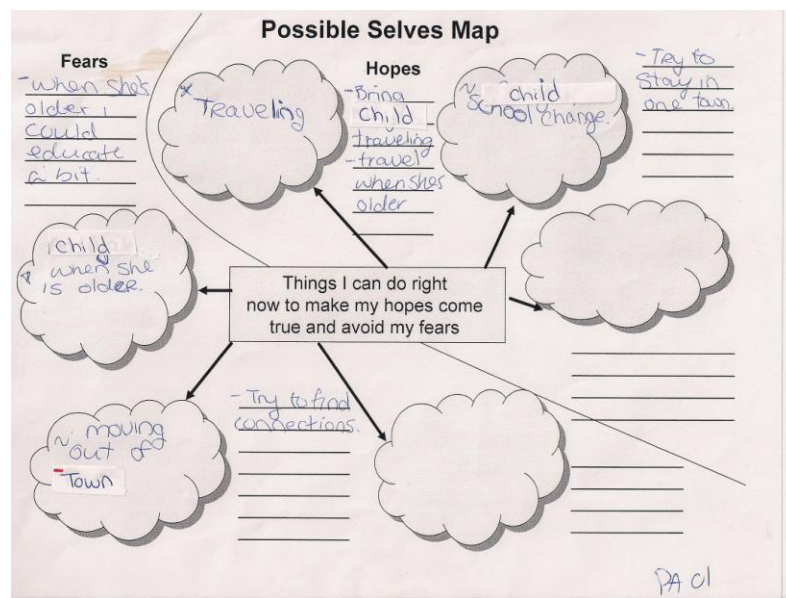 Possible Selves Map
Fears
- when she's
older i
could
educate
a bit.
Traveling
Hopes
- Bring
Child
traveling
- travel
when shes
older
~ child
School change.
- Try to
Stay in
one town
child
when she
is older.
Things I can do right
now to make my hopes come
true and avoid my fears
~ moving
out of
Town
- Try to find
connections.
PA 01